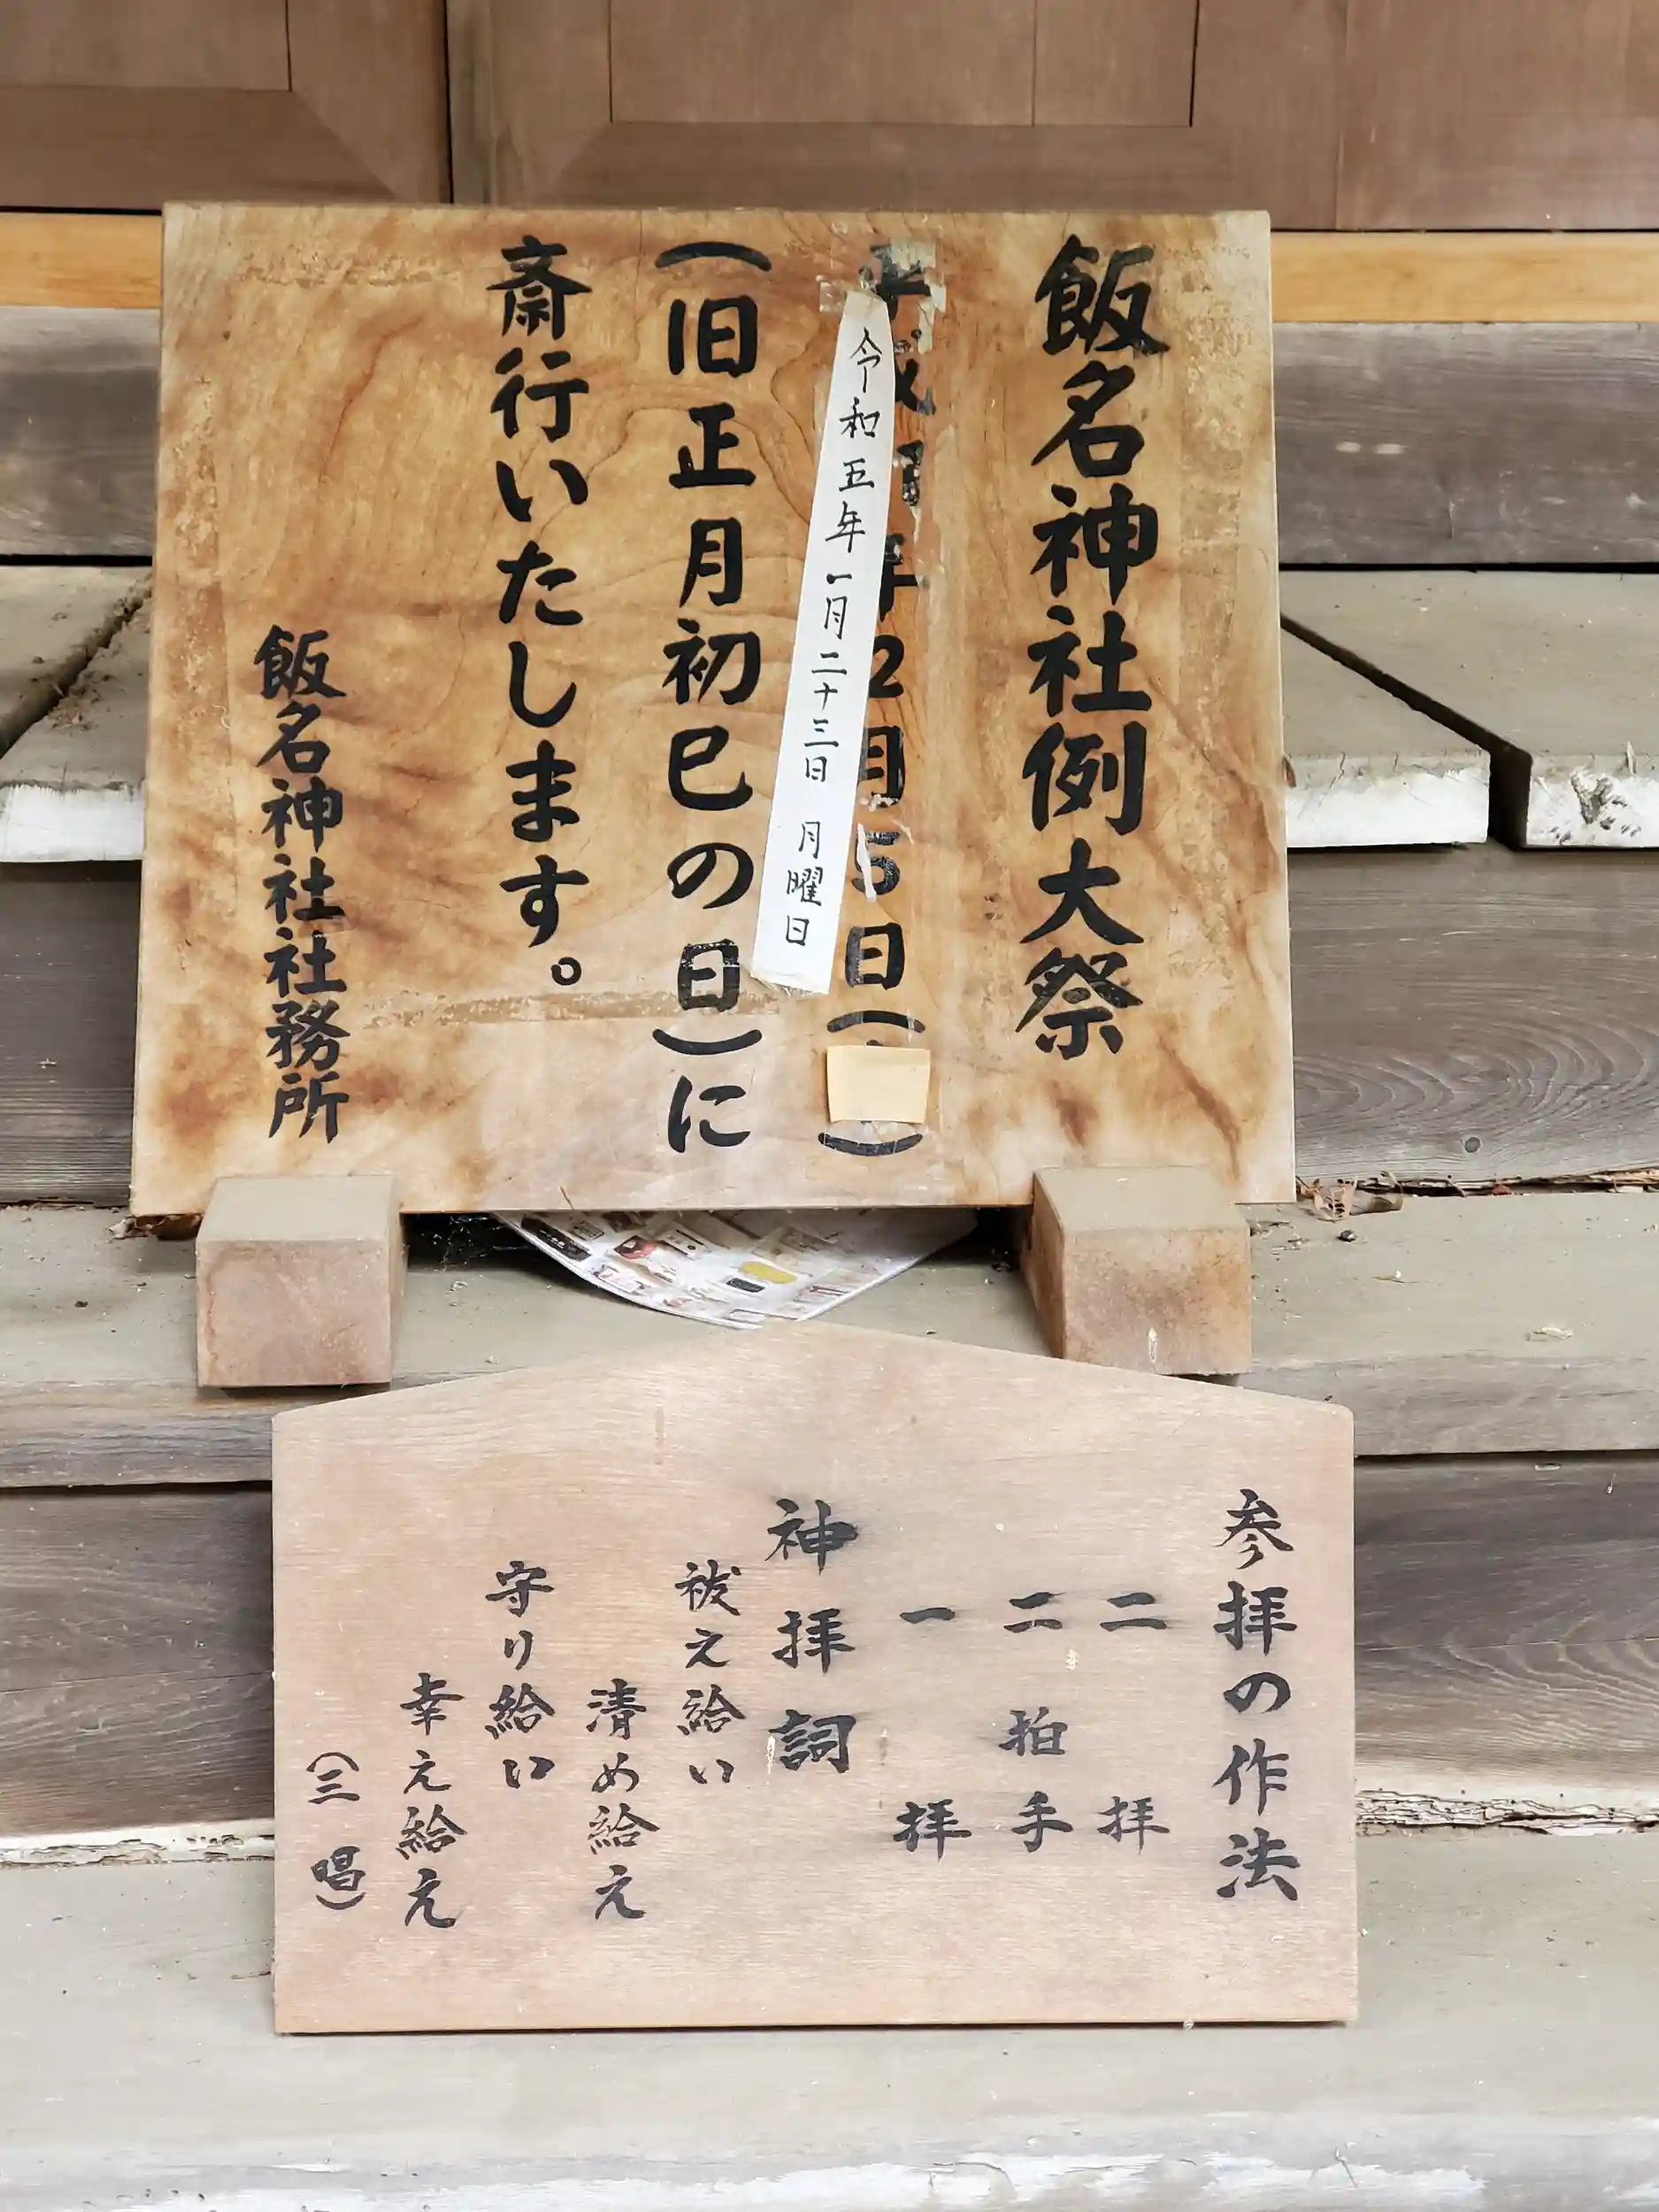 飯名神社例大祭
2月5日(
令和五年一月二十三日 月曜日
(旧正月初巳の日)に
斎行いたします。
飯名神社社務所
参拝の作法
二拝
二拍手
一拝
神拝詞
祓え給い
清め給え
守り給い
幸え給え
(三唱)